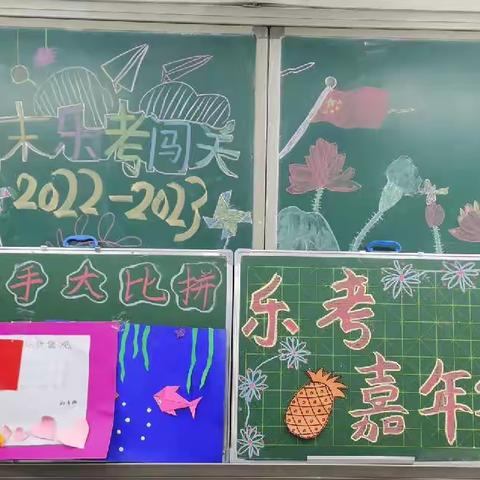 末乐考闯关
2022-2023
手大比拼
乐考
嘉年